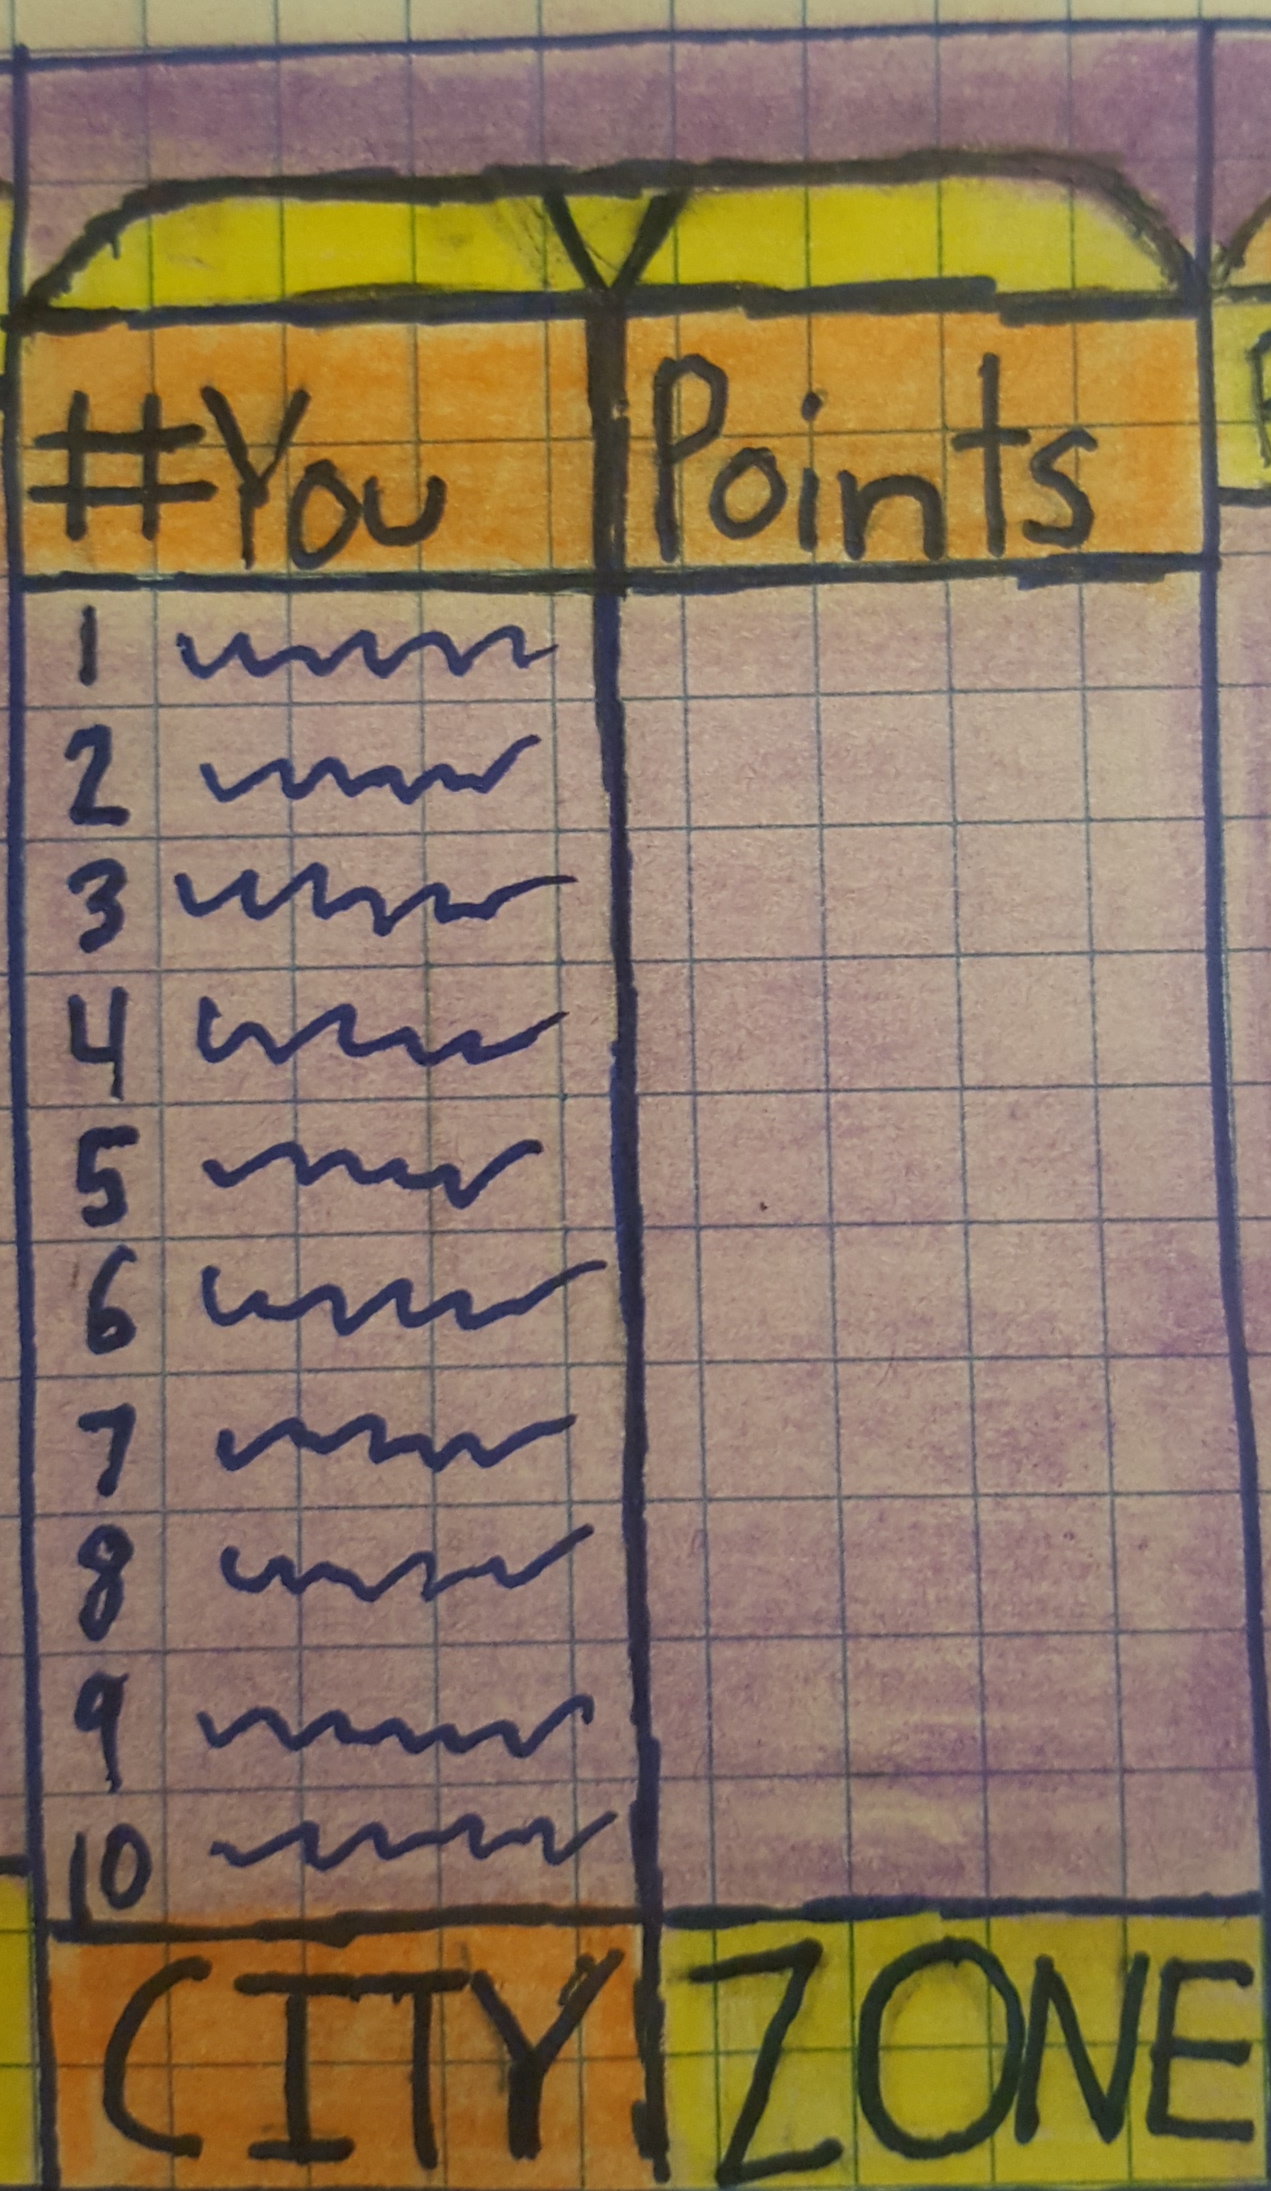 #You Points
1
2
3
4
5
6
7
8
9
10
CITY ZONE